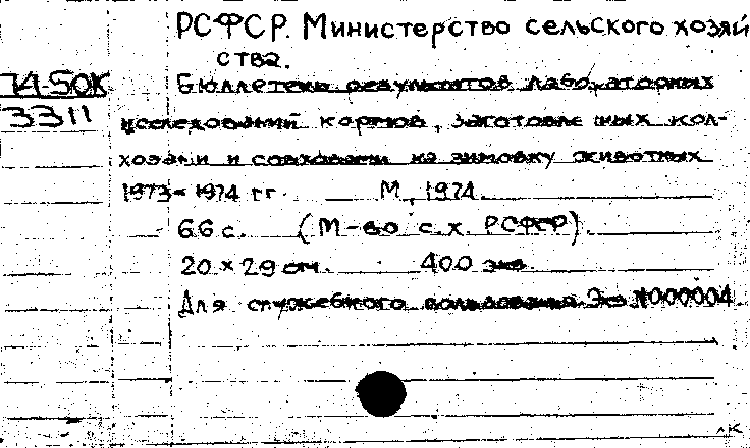 РСФСР. Министерство сельского хозяй
ства.
74-50К
3311
Бюллетень результатов лабораторных
исследований кормов, заготовленных кол-
хозами и совхозами на зимовку животных
1973-1974 гг. М., 1974.
66 с. (М-во с.х. РСФСР).
20 × 29 см. 400 экз.
Для служебного пользования. Экз №000004